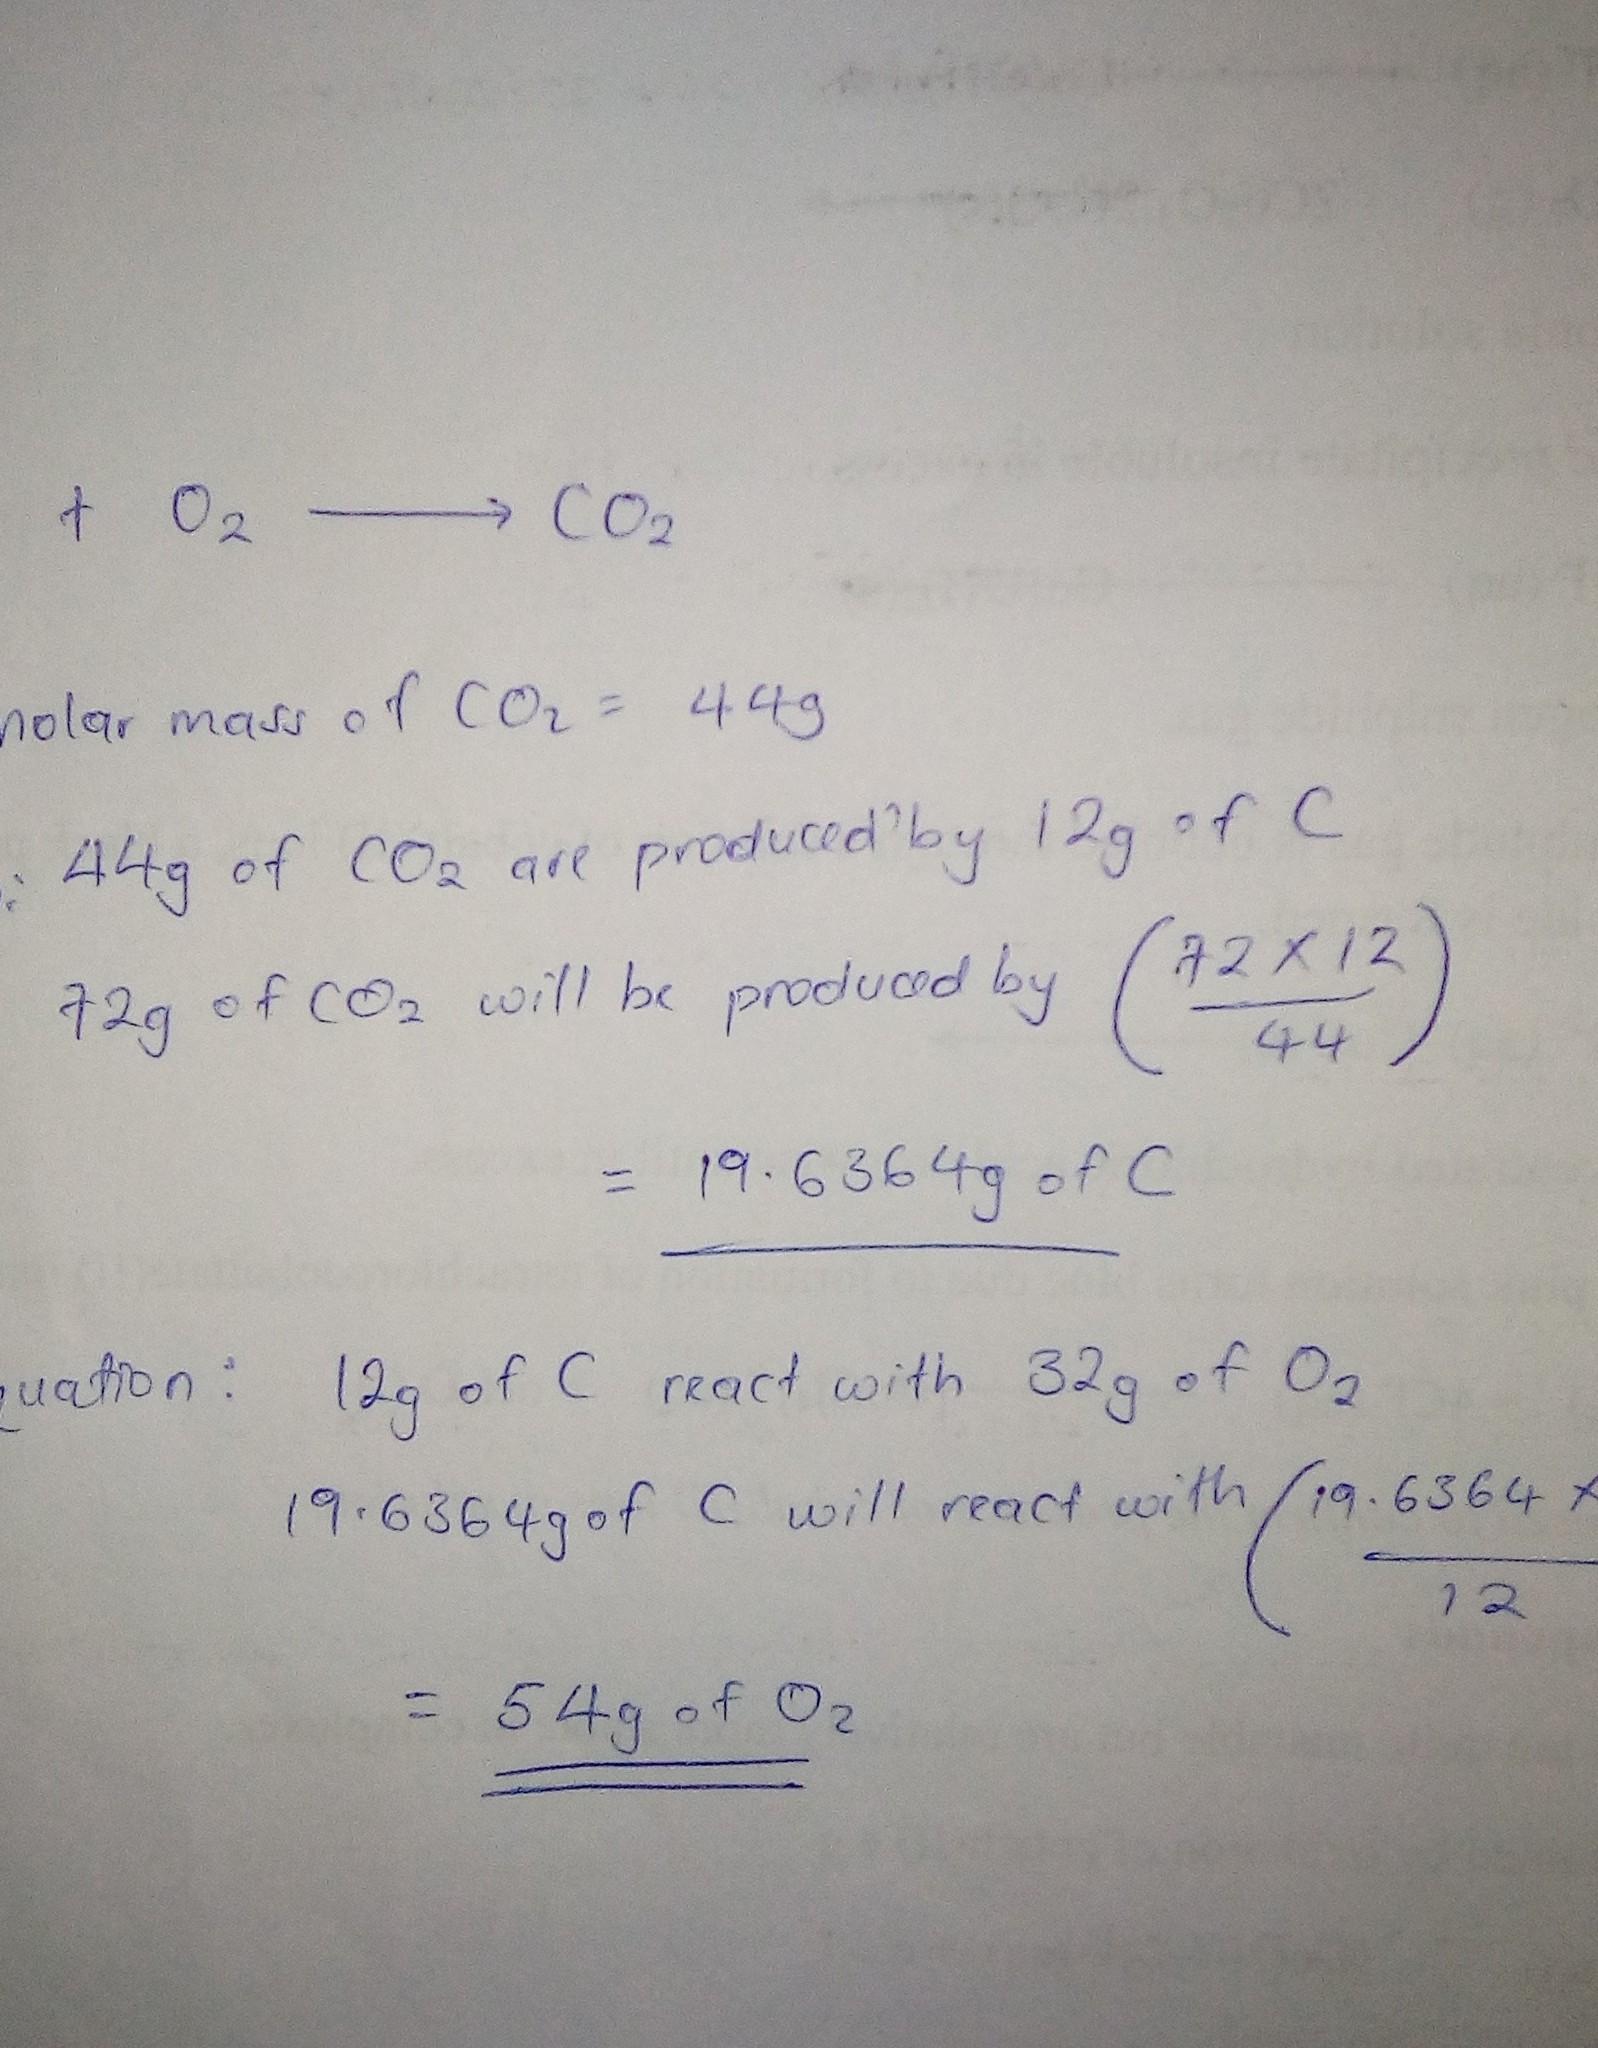 + O₂ ⟶ CO₂
molar mass of CO₂ = 44g
: 44g of CO₂ are produced by 12g of C
72g of CO₂ will be produced by (72 × 12 / 44)
= 19.6364g of C
quation: 12g of C react with 32g of O₂
19.6364g of C will react with (19.6364 × / 12
= 54g of O₂